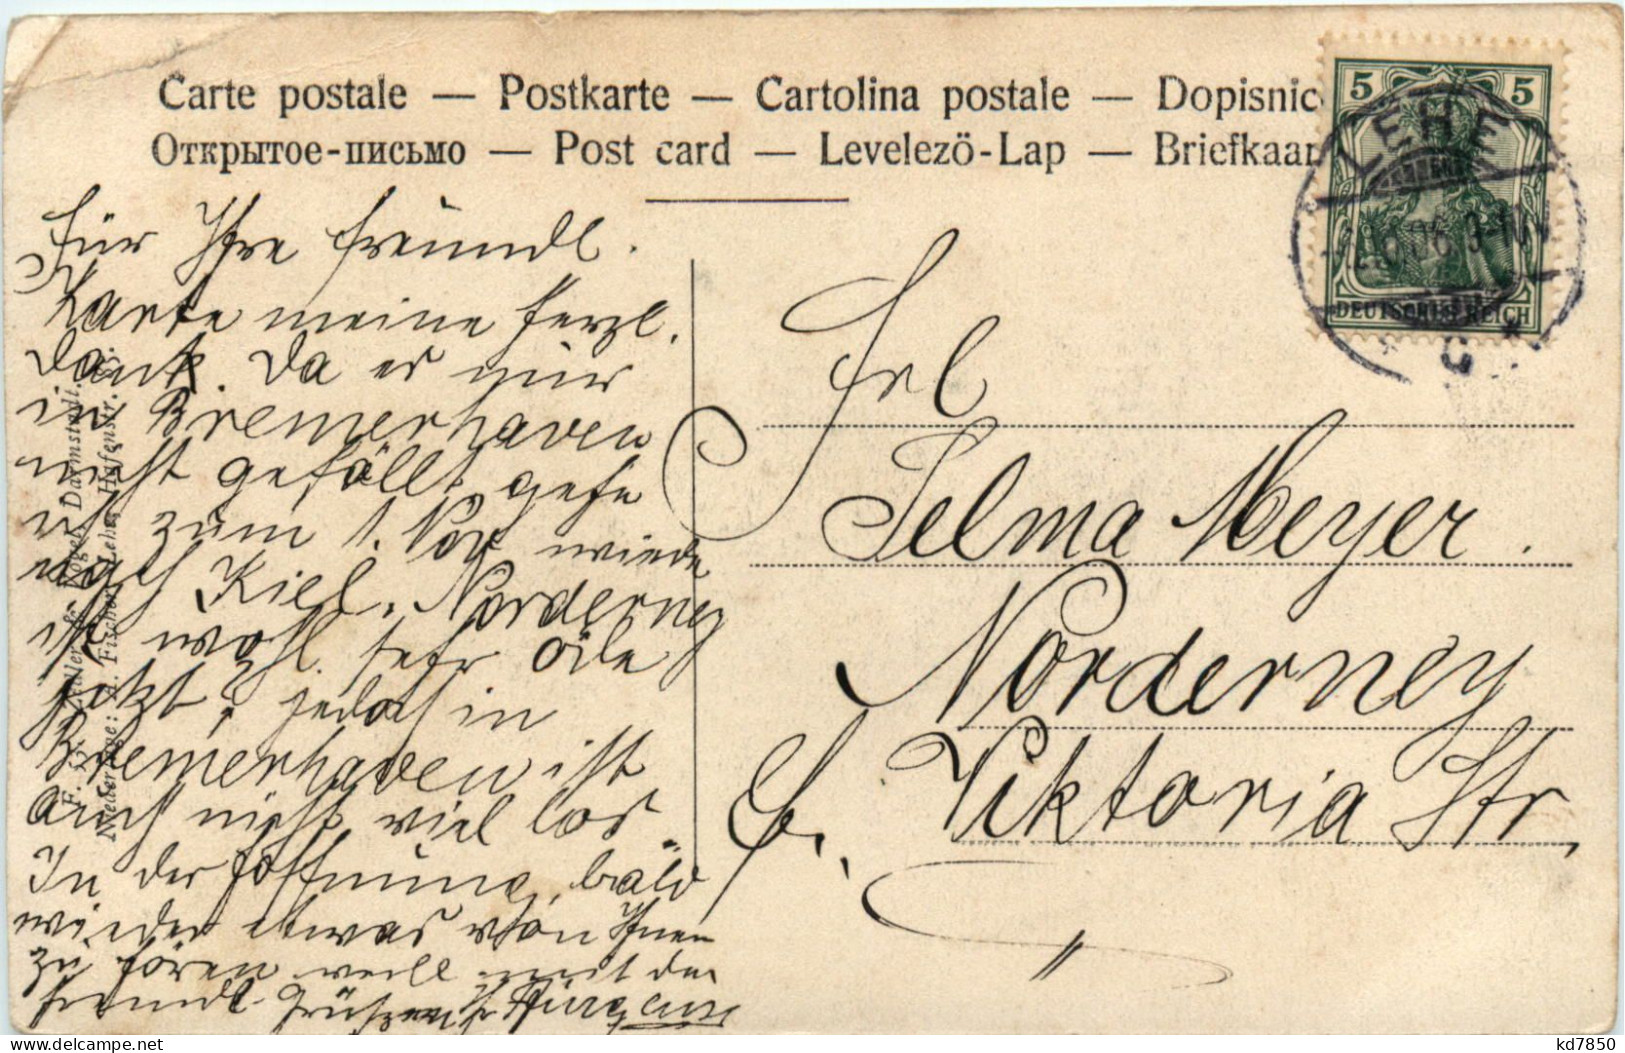 Carte postale — Postkarte — Cartolina postale — Dopisnic
Открытое-письмо — Post card — Levelezö-Lap — Briefkaar
5 5
LEHE
DEUTSCHES REICH
C
Für Ihre freundl.
Karte meine herzl.
Dank. Da es mir
in Bremerhaven
nicht gefällt gehe
ich zum 1. Nov wieder
nach Kiel. Norderney
ist wohl sehr öde
jetzt, jedoch in
Bremerhaven ist
auch nicht viel los.
In der Hoffnung, bald
wieder etwas von Ihnen
zu hören mit den
freundl. Grüßen
Frl
Selma Meyer.
Norderney
Viktoria Str.
Vogel, Darmstadt.
Niederlage: Fischer, Lehe, Hafenstr.
kd7850